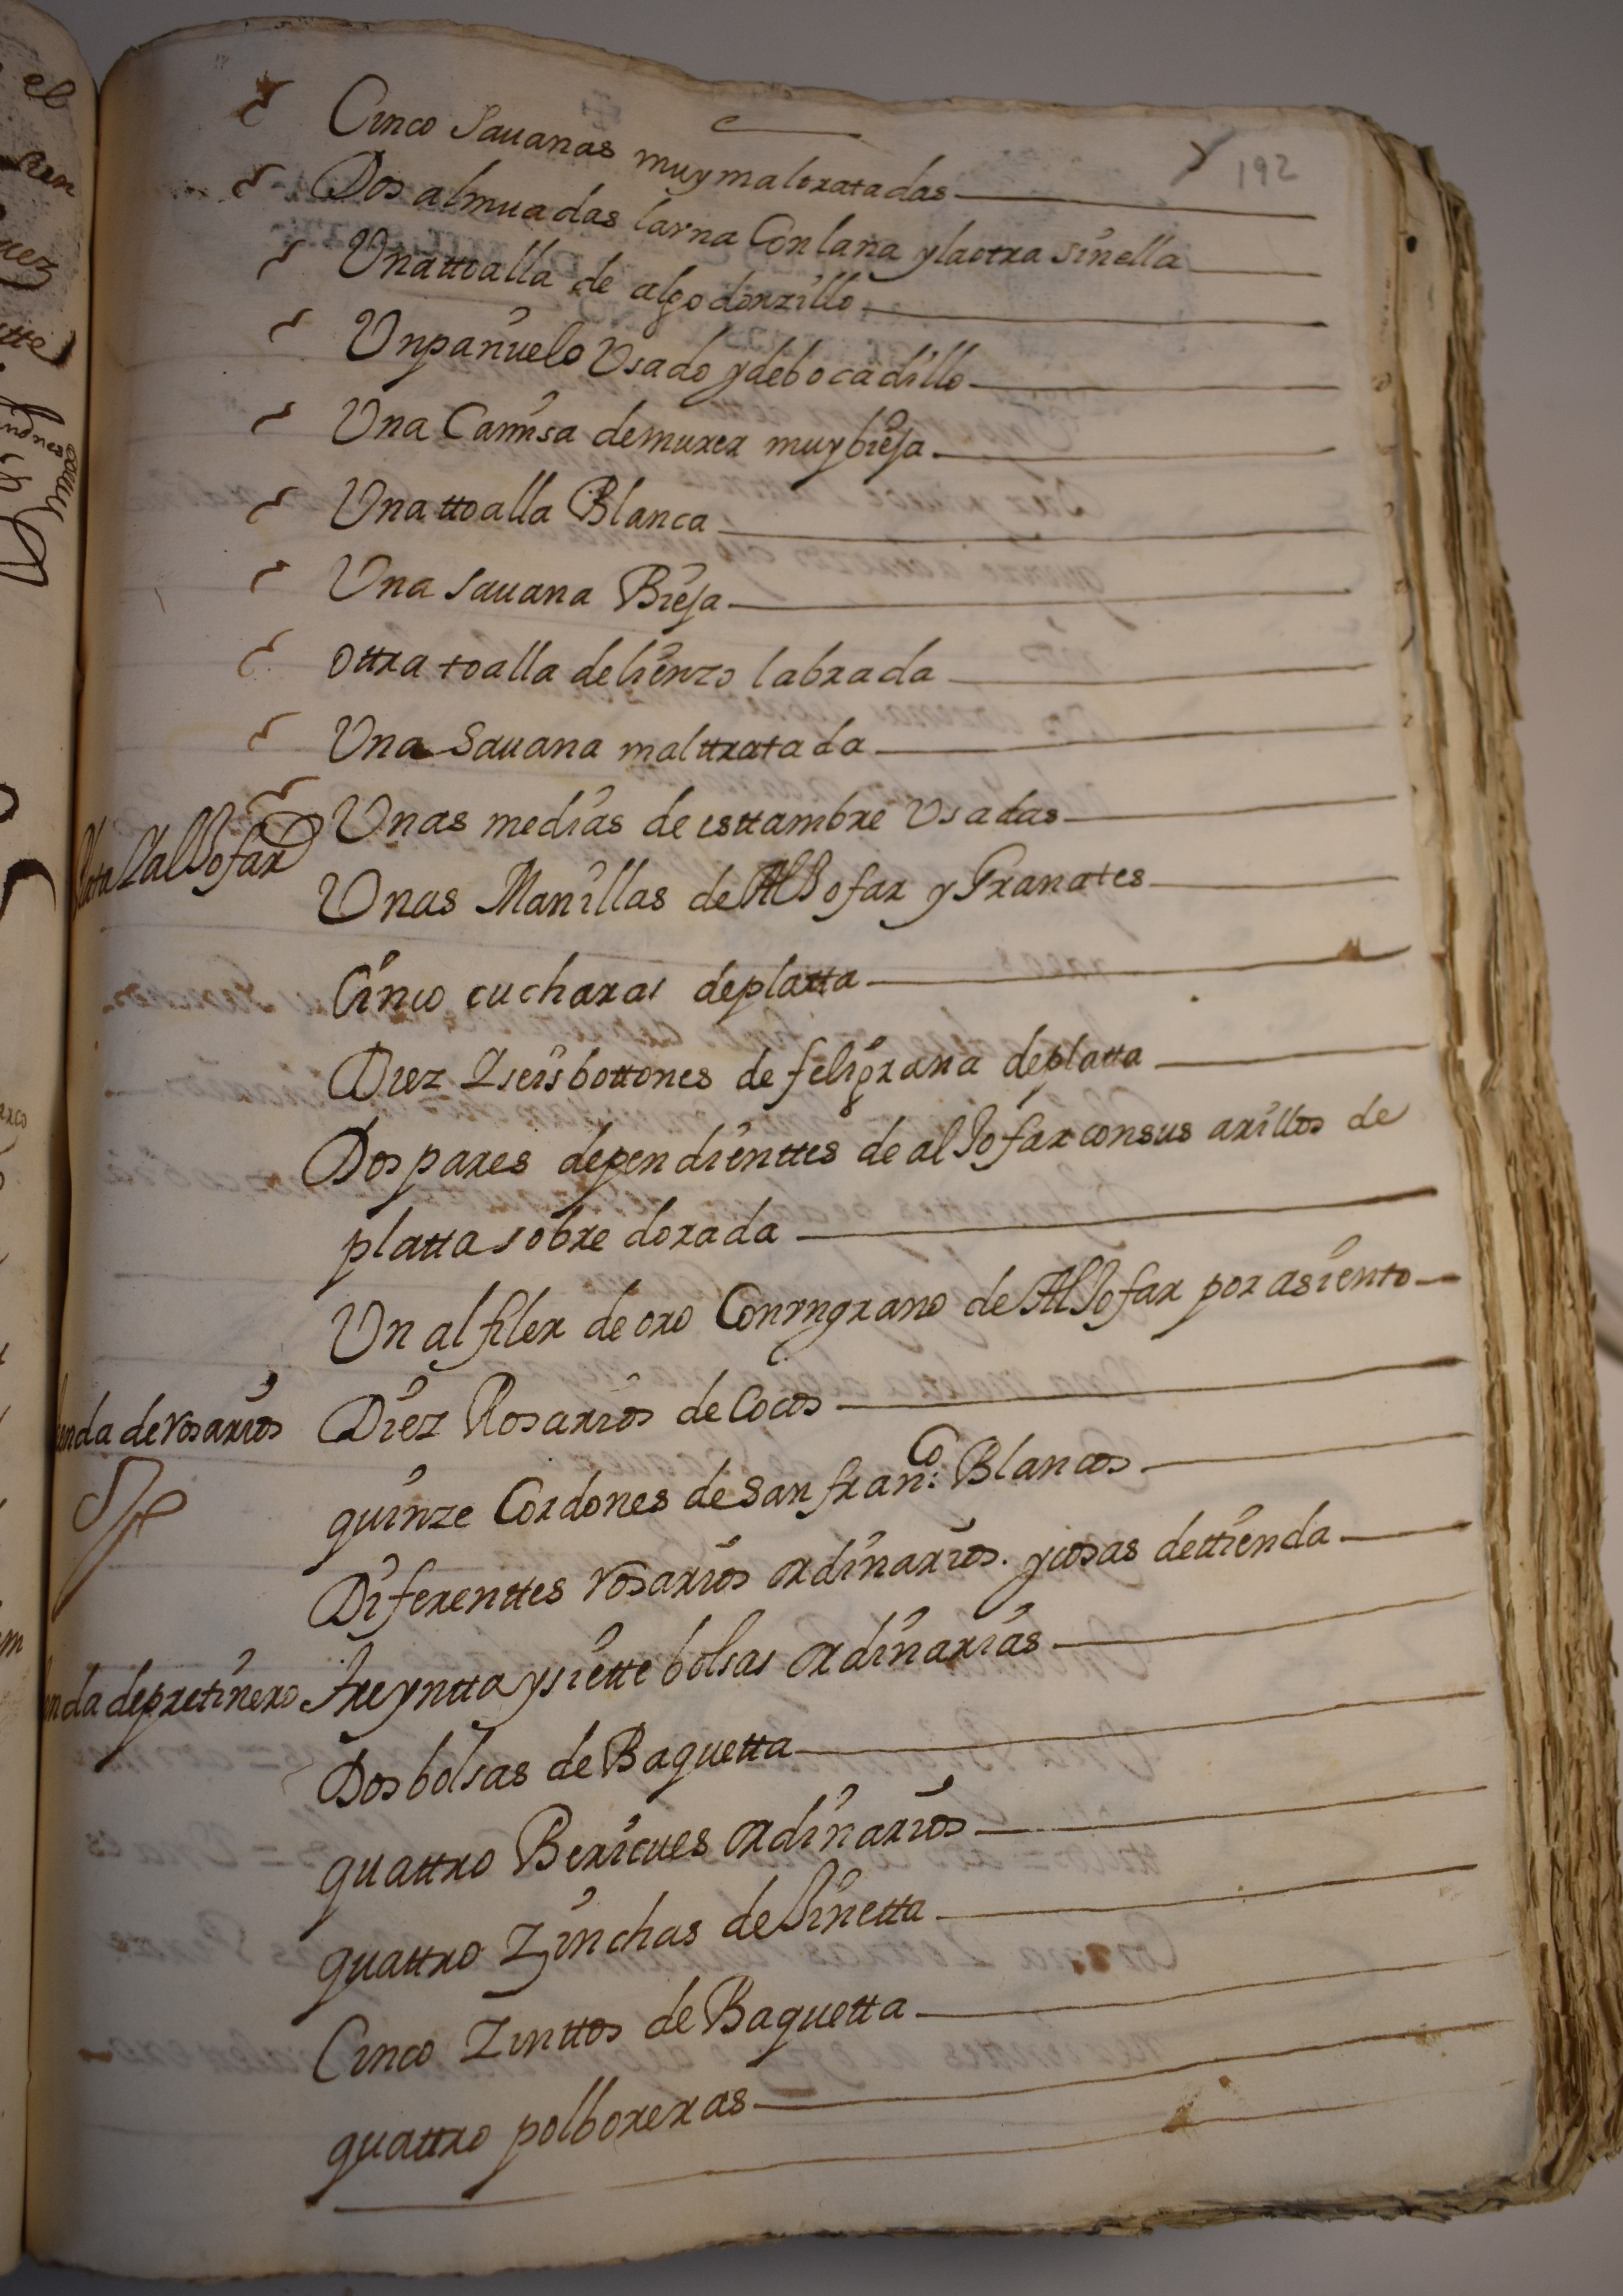 192
Cinco Sauanas muy maltratadas
Dos almuadas la vna Con lana y la otra sin ella
Vna ttoalla de algodonzillo
Vn pañuelo Vsado y de bocadillo
Una Camisa de muxer muy bieja
Una ttoalla Blanca
Una sauana Bieja
ottra toalla de lienzo labrada
Una Sauana malttratada
Unas medias de esttambre Vsadas
Platta Y alJofar
Unas Manillas de AlJofar y Granates
Cinco cucharas de platta
Diez Y seis bottones de feligrana de platta
Dos pares de pendienttes de alJofar con sus arillos de
platta sobre dorada
Un alfiler de oro Con vn grano de AlJofar por asiento
tienda de rosarios
Diez Rosarios de Cocos
quinze Cordones de San fran.co Blancos
Diferenttes rosarios ordinarios. y cosas de ttienda
tienda de pretinero
treyntta y siette bolsas ordinarias
Dos bolsas de Baquetta
quattro Bericues ordinarios
quattro Zinchas de Jinetta
Cinco Zinttos de Baquetta
quattro polboreras